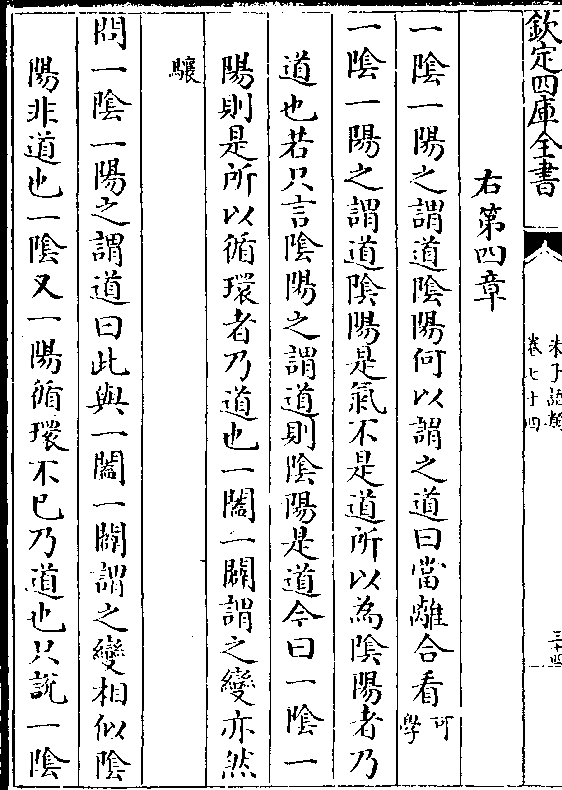 欽定四庫全書
朱子語類
卷七十四
三十四
右第四章
一陰一陽之謂道陰陽何以謂之道曰當離合看可學
一陰一陽之謂道陰陽是氣不是道所以為陰陽者乃
道也若只言陰陽之謂道則陰陽是道今曰一陰一
陽則是所以循環者乃道也一闔一闢謂之變亦然
驤
問一陰一陽之謂道曰此與一闔一闢謂之變相似陰
陽非道也一陰又一陽循環不已乃道也只說一陰